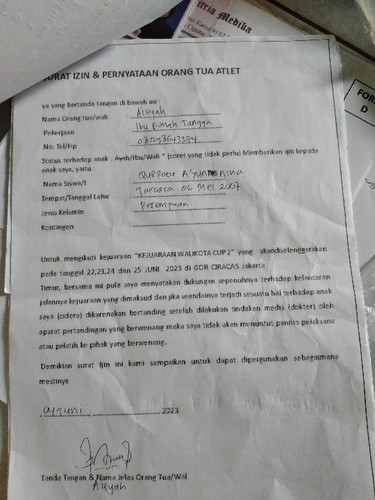 Medika
FOR
D
SURAT IZIN & PERNYATAAN ORANG TUA ATLET
ya yang bertanda tangan di bawah ini :
Nama Orang tua/wali : Aisyah
Pekerjaan : Ibu Rumah Tangga
No. Tel/Hp
Status terhadap anak : Ayah/Ibu/Wali * (coret yang tidak perlu) Memberikan ijin kepada
anak saya, yaitu :
Nama Siswa/I
Tempat/Tanggal Lahir Jakarta 06 Mei 2007
Jenis Kelamin Perempuan
Kontingen
Untuk mengikuti kejuaraan "KEJUARAAN WALIKOTA CUP 2" yang akandiselenggarakan
pada tanggal 22,23,24 dan 25 JUNI 2023 di GOR CIRACAS Jakarta
Timur, bersama ini pula saya menyatakan dukungan sepenuhnya terhadap kelancaran
jalannya kejuaraan yang dimaksud dan jika seandainya terjadi sesuatu hal terhadap anak
saya (cidera) dikarenakan bertanding setelah dilakukan tindakan medis (dokter) oleh
aparat pertandingan yang berwenang maka saya tidak akan menuntut panitia pelaksana
atau pelatih ke pihak yang berwenang.
Demikian surat ijin ini kami sampaikan untuk dapat dipergunakan sebagaimana
mestinya
2023
Tanda Tangan & Nama Jelas Orang Tua/Wali
Aisyah